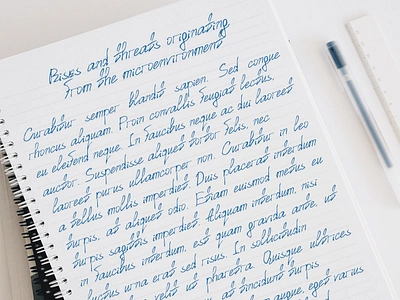 Risks and threats originating
from the microenvironment
Curabitur semper blandit sapien. Sed congue
rhoncus aliquam. Proin convallis feugiat lectus,
eu eleifend neque. In faucibus neque ac dui laoreet
auctor. Suspendisse aliquet tortor felis, nec
laoreet purus ullamcorper non. Curabitur in leo
a tellus mollis imperdiet. Duis placerat interdum
turpis, at aliquet odio. Etiam euismod metus eu
turpis sagittis imperdiet. Aliquam interdum, nisi
in faucibus interdum, est quam gravida ante, ut
urna erat sed risus. In sollicitudin
velit ut pharetra. Quisque ultrices
at tincidunt turpis
augue, eget varus